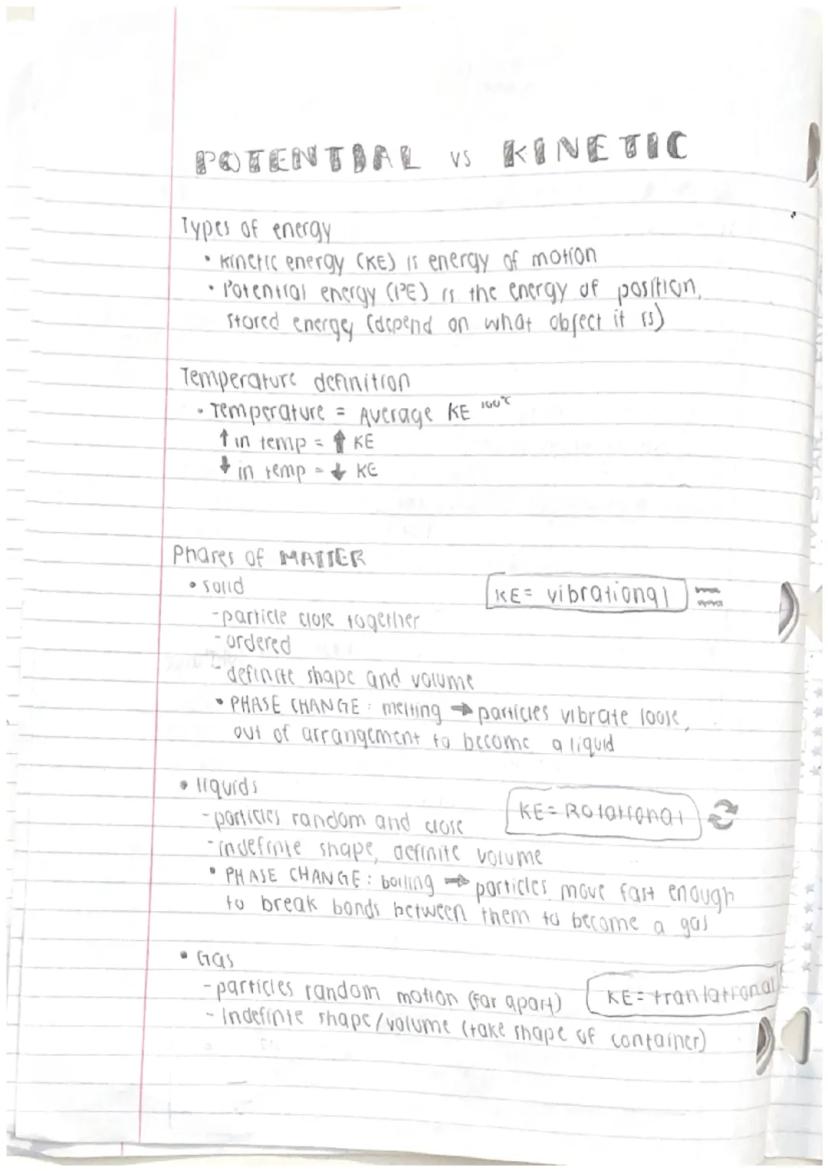 POTENTIAL vs KINETIC
Types of energy
• Kinetic energy (KE) is energy of motion
• Potential energy (PE) is the energy of position,
stored energy (depend on what object it is)
Temperature definition
• Temperature = Average KE 100°C
↑ in temp = ↑ KE
↓ in temp = ↓ KE
Phases of MATTER
• solid
KE= vibrational
-particle close together
-ordered
-definite shape and volume
• PHASE CHANGE: melting → particles vibrate loose,
out of arrangement to become a liquid
• liquids
KE= Rotational
-particles random and close
-indefinite shape, definite volume
• PHASE CHANGE: boiling → particles move fast enough
to break bonds between them to become a gas
• Gas
-particles random motion (far apart)
KE= tranlational
- Indefinite shape/volume (take shape of container)